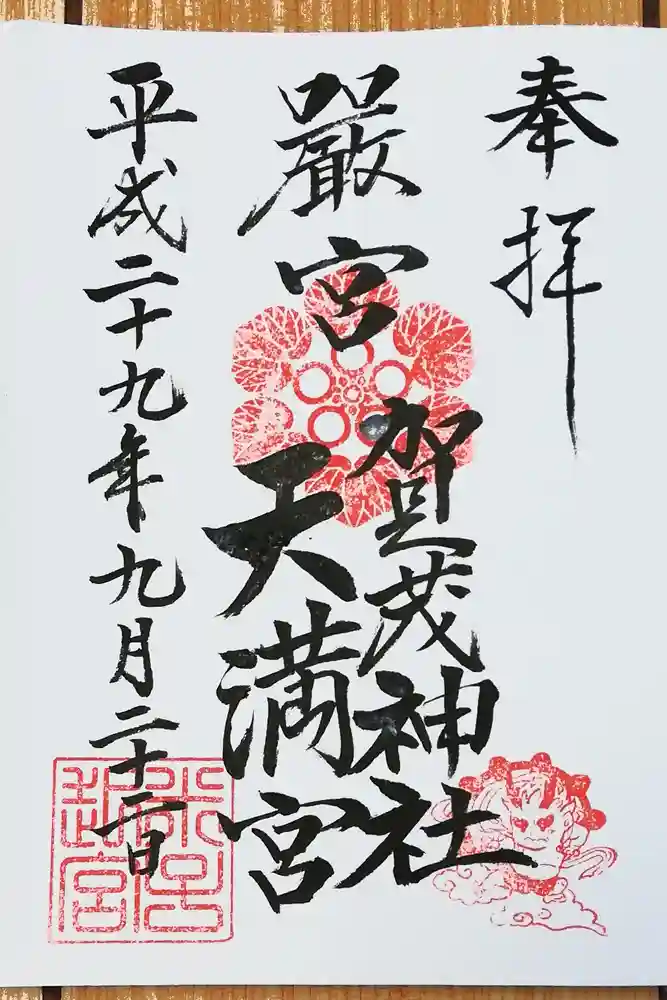 奉拝
嚴宮
賀茂神社
天満宮
平成二十九年九月二十二日